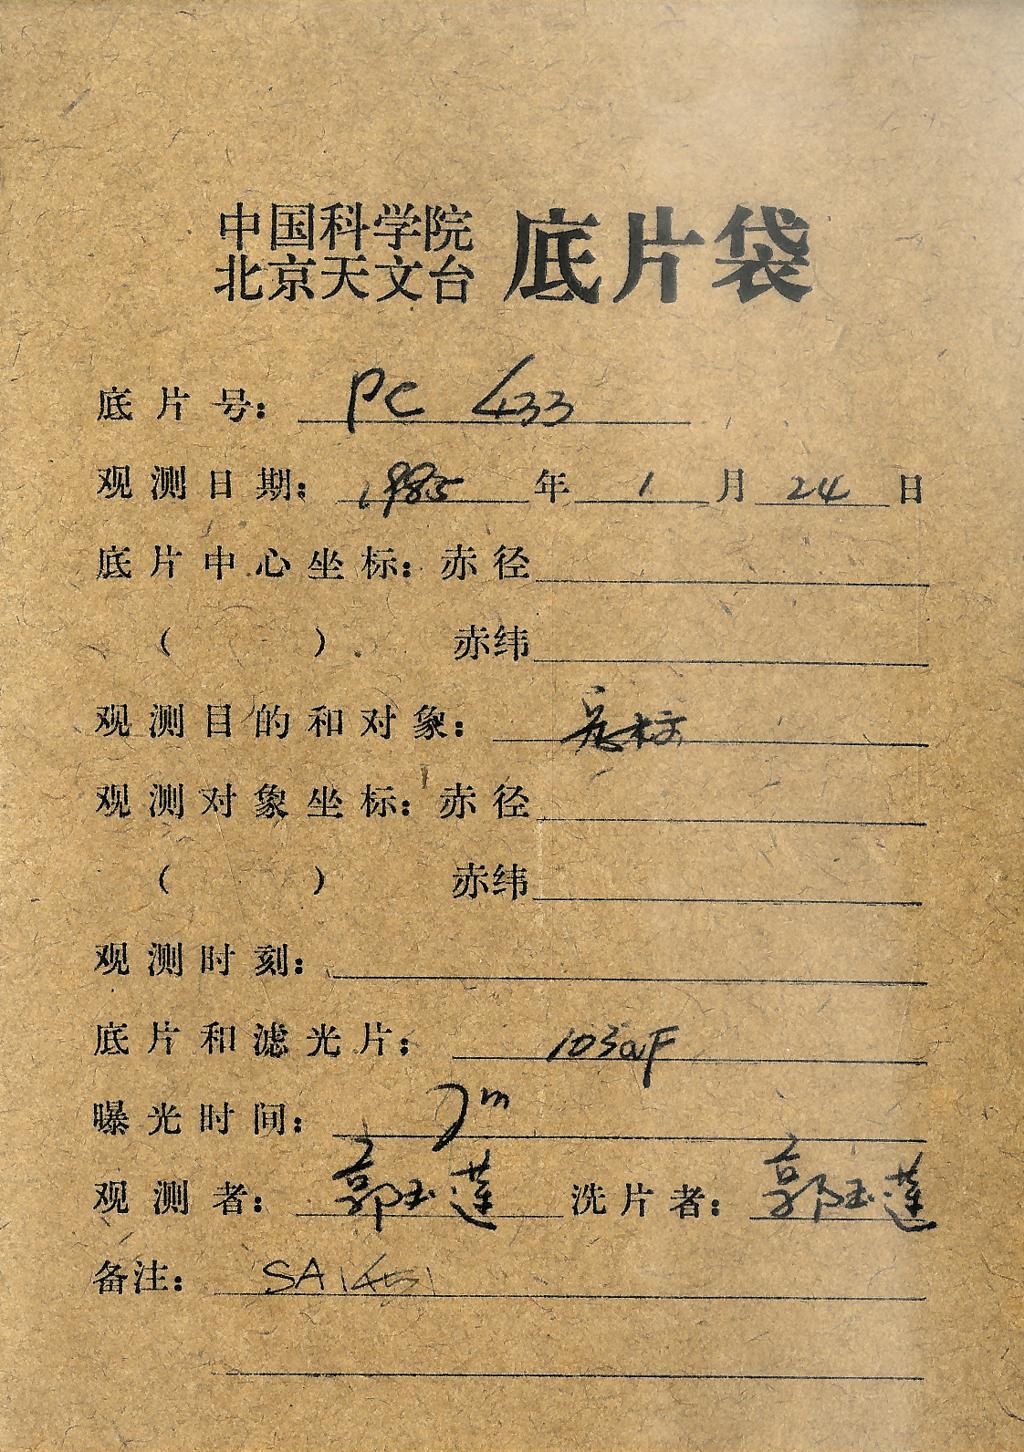 中国科学院
北京天文台 底片袋
底片号: PC 433
观测日期: 1985 年 1 月 24 日
底片中心坐标: 赤径
( ) 赤纬
观测目的和对象:
观测对象坐标: 赤径
( ) 赤纬
观测时刻:
底片和滤光片: 103aF
曝光时间: m
观测者: 郭玉莲 洗片者: 郭玉莲
备注: